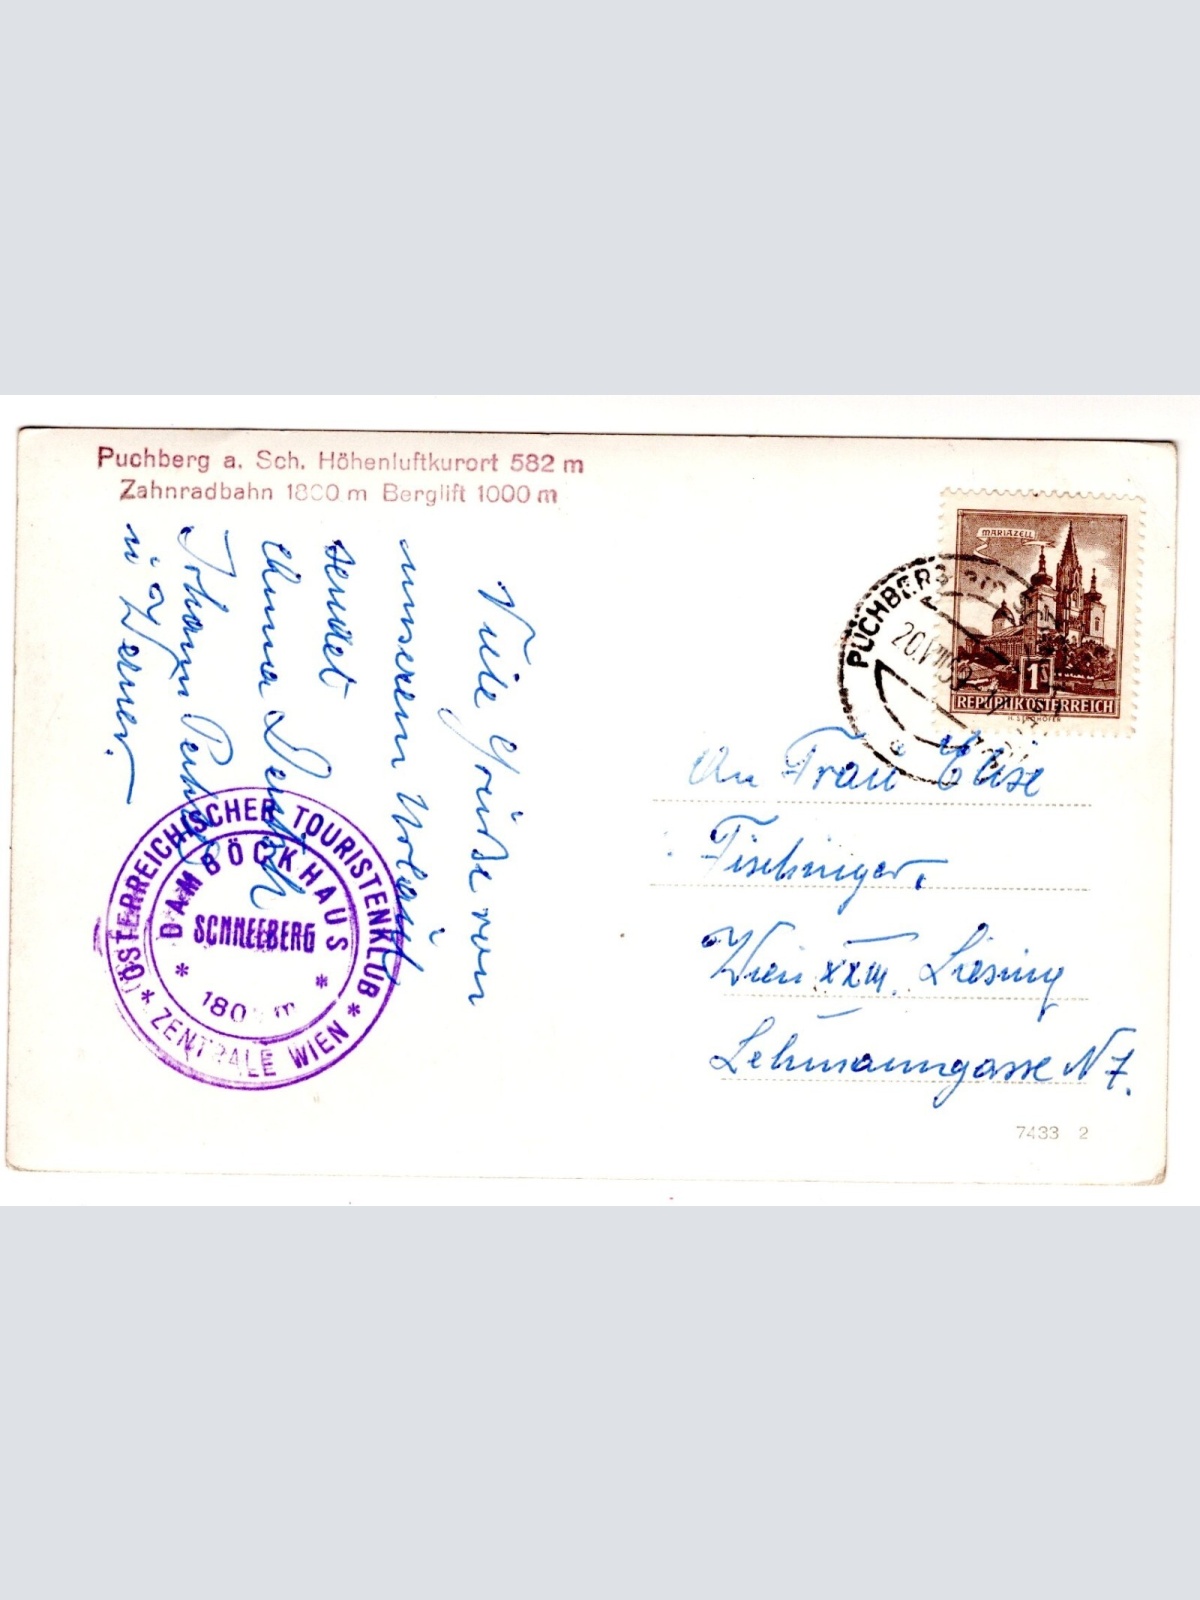 Puchberg a. Sch. Höhenluftkurort 582 m
Zahnradbahn 1800 m Berglift 1000 m
Viele Grüße von
unserem Urlaub
sendet
Johann
u. Werner.
ÖSTERREICHISCHER TOURISTENKLUB
* ZENTRALE WIEN *
DAMBÖCKHAUS
SCHNEEBERG
* 180 m *
MARIAZELL
1S
REPUBLIK ÖSTERREICH
PUCHBERG
20.VIII.59
An Frau Elise
Fischinger,
Wien XXIII. Liesing
Lehmanngasse N 7.
7433 2